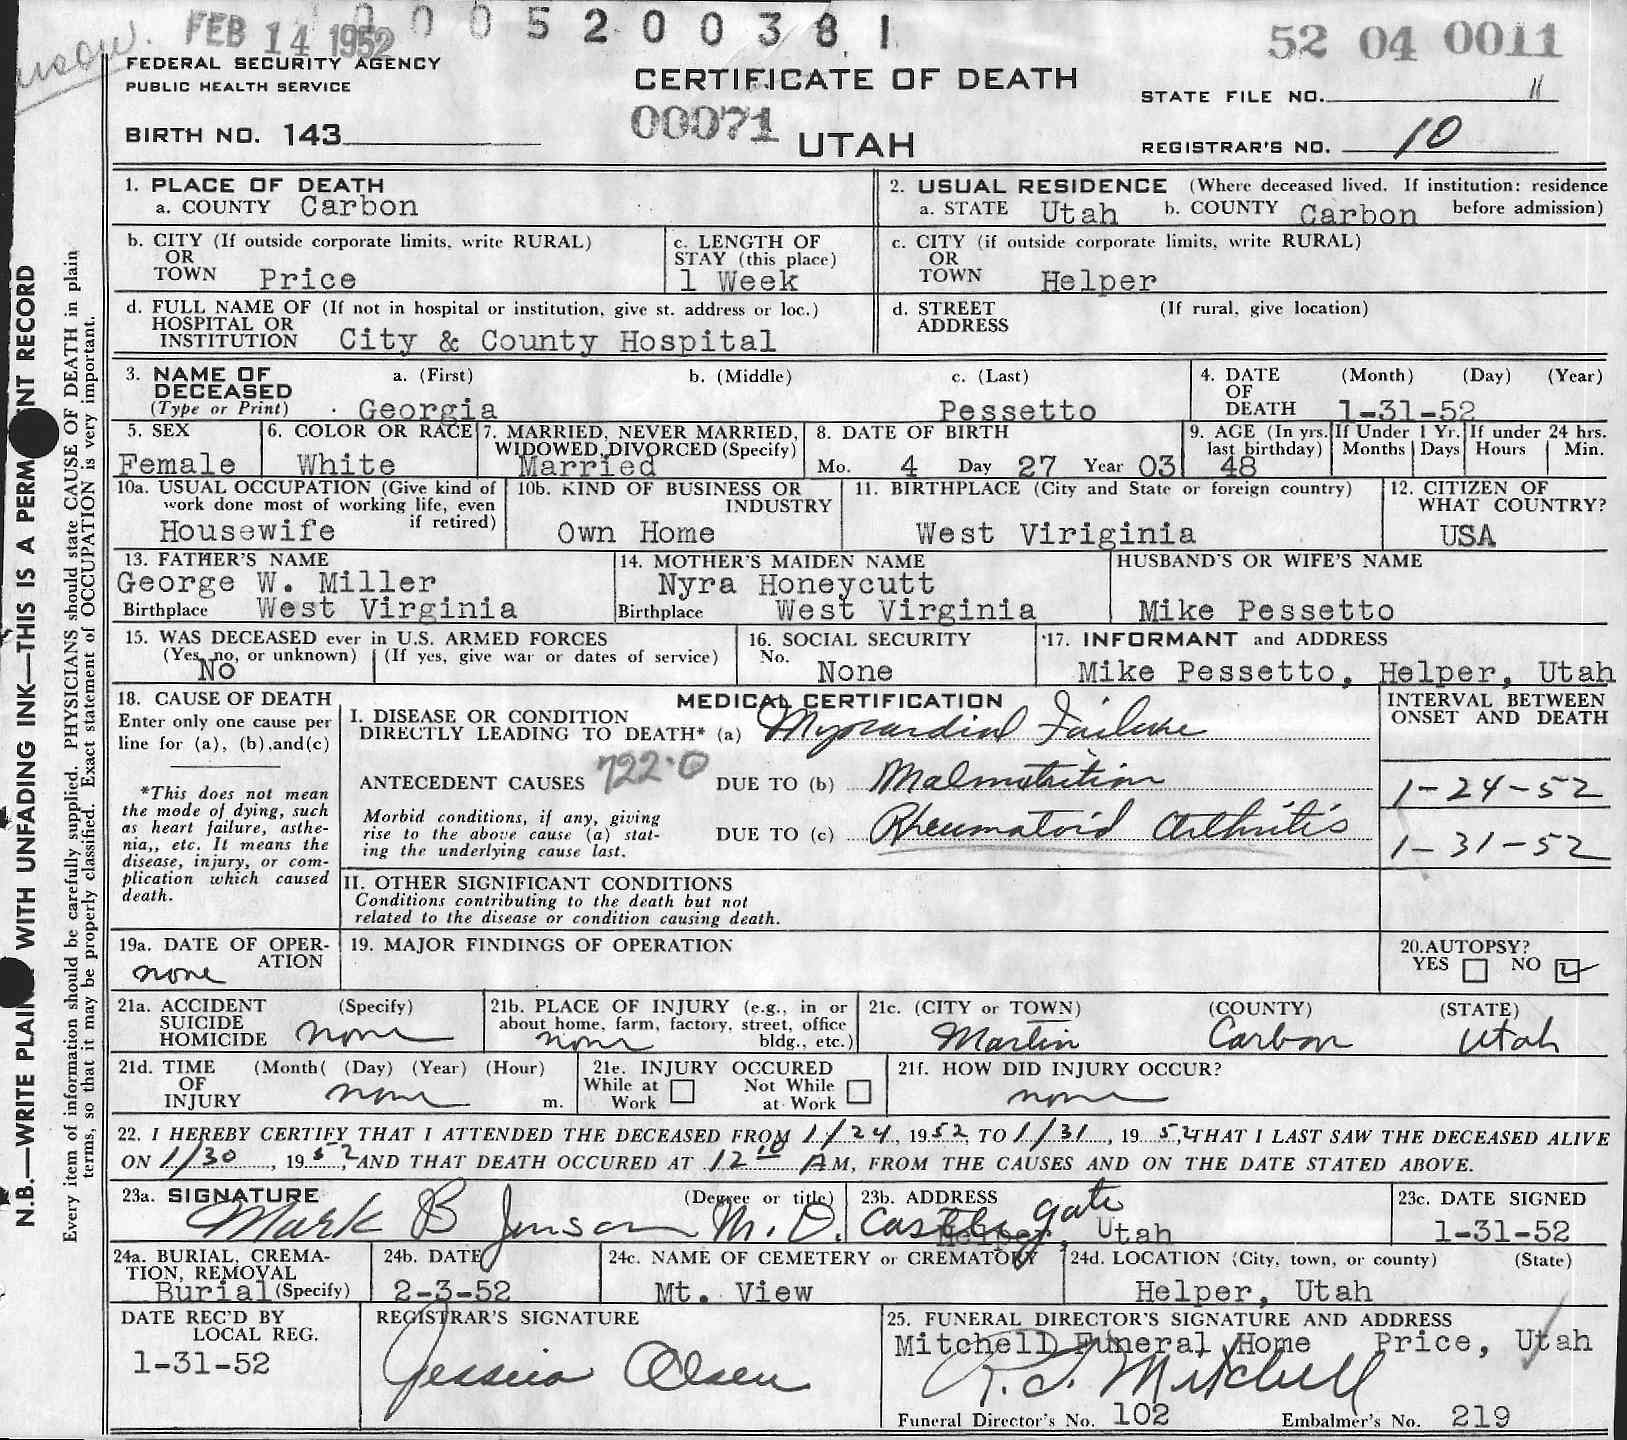 FEB 14 1952
0 0 5 2 0 0 3 8 1
52 04 0011
FEDERAL SECURITY AGENCY
PUBLIC HEALTH SERVICE
CERTIFICATE OF DEATH
STATE FILE NO. 11
BIRTH NO. 143
00071 UTAH
REGISTRAR'S NO. 10
N.B.—WRITE PLAIN WITH UNFADING INK—THIS IS A PERM NT RECORD
Every item of information should be carefully supplied. PHYSICIANS should state CAUSE OF DEATH in plain
terms, so that it may be properly classified. Exact statement of OCCUPATION is very important.
1. PLACE OF DEATH
a. COUNTY Carbon
2. USUAL RESIDENCE (Where deceased lived. If institution: residence
a. STATE Utah b. COUNTY Carbon before admission)
b. CITY (If outside corporate limits, write RURAL)
OR
TOWN Price
c. LENGTH OF
STAY (this place)
1 Week
c. CITY (if outside corporate limits, write RURAL)
OR
TOWN Helper
d. FULL NAME OF (If not in hospital or institution, give st. address or loc.)
HOSPITAL OR
INSTITUTION City & County Hospital
d. STREET (If rural, give location)
ADDRESS
3. NAME OF a. (First) b. (Middle) c. (Last)
DECEASED
(Type or Print) Georgia Pessetto
4. DATE (Month) (Day) (Year)
OF
DEATH 1-31-52
5. SEX
Female
6. COLOR OR RACE
White
7. MARRIED, NEVER MARRIED,
WIDOWED, DIVORCED (Specify)
Married
8. DATE OF BIRTH
Mo. 4 Day 27 Year 03
9. AGE (In yrs.
last birthday)
48
If Under 1 Yr.
Months Days
If under 24 hrs.
Hours Min.
10a. USUAL OCCUPATION (Give kind of
work done most of working life, even
if retired)
Housewife
10b. KIND OF BUSINESS OR
INDUSTRY
Own Home
11. BIRTHPLACE (City and State or foreign country)
West Viriginia
12. CITIZEN OF
WHAT COUNTRY?
USA
13. FATHER'S NAME
George W. Miller
Birthplace West Virginia
14. MOTHER'S MAIDEN NAME
Nyra Honeycutt
Birthplace West Virginia
HUSBAND'S OR WIFE'S NAME
Mike Pessetto
15. WAS DECEASED ever in U.S. ARMED FORCES
(Yes, no, or unknown) (If yes, give war or dates of service)
No
16. SOCIAL SECURITY
No. None
17. INFORMANT and ADDRESS
Mike Pessetto, Helper, Utah
18. CAUSE OF DEATH
Enter only one cause per
line for (a), (b), and (c)
*This does not mean
the mode of dying, such
as heart failure, asthe-
nia,, etc. It means the
disease, injury, or com-
plication which caused
death.
MEDICAL CERTIFICATION
I. DISEASE OR CONDITION
DIRECTLY LEADING TO DEATH* (a) Myocardial Failure
ANTECEDENT CAUSES 722.0 DUE TO (b) Malnutrition
Morbid conditions, if any, giving
rise to the above cause (a) stat-
ing the underlying cause last.
DUE TO (c) Rheumatoid Arthritis
INTERVAL BETWEEN
ONSET AND DEATH
1-24-52
1-31-52
II. OTHER SIGNIFICANT CONDITIONS
Conditions contributing to the death but not
related to the disease or condition causing death.
19a. DATE OF OPER-
ATION
none
19. MAJOR FINDINGS OF OPERATION
20. AUTOPSY?
YES NO
21a. ACCIDENT (Specify)
SUICIDE
HOMICIDE none
21b. PLACE OF INJURY (e.g., in or
about home, farm, factory, street, office
bldg., etc.)
none
21c. (CITY or TOWN) (COUNTY) (STATE)
Martin Carbon Utah
21d. TIME (Month( (Day) (Year) (Hour)
OF
INJURY none m.
21e. INJURY OCCURED
While at Work Not While at Work
21f. HOW DID INJURY OCCUR?
none
22. I HEREBY CERTIFY THAT I ATTENDED THE DECEASED FROM 1/24, 1952, TO 1/31, 1952, THAT I LAST SAW THE DECEASED ALIVE
ON 1/30, 1952, AND THAT DEATH OCCURED AT 12 10 AM, FROM THE CAUSES AND ON THE DATE STATED ABOVE.
23a. SIGNATURE (Degree or title)
Mark B Jenson M.D.
23b. ADDRESS
Castle gate
Helper, Utah
23c. DATE SIGNED
1-31-52
24a. BURIAL, CREMA-
TION, REMOVAL
Burial (Specify)
24b. DATE
2-3-52
24c. NAME OF CEMETERY or CREMATORY
Mt. View
24d. LOCATION (City, town, or county) (State)
Helper, Utah
DATE REC'D BY
LOCAL REG.
1-31-52
REGISTRAR'S SIGNATURE
Jessica Olsen
25. FUNERAL DIRECTOR'S SIGNATURE AND ADDRESS
Mitchell Funeral Home Price, Utah
R. T. Mitchell
Funeral Director's No. 102 Embalmer's No. 219